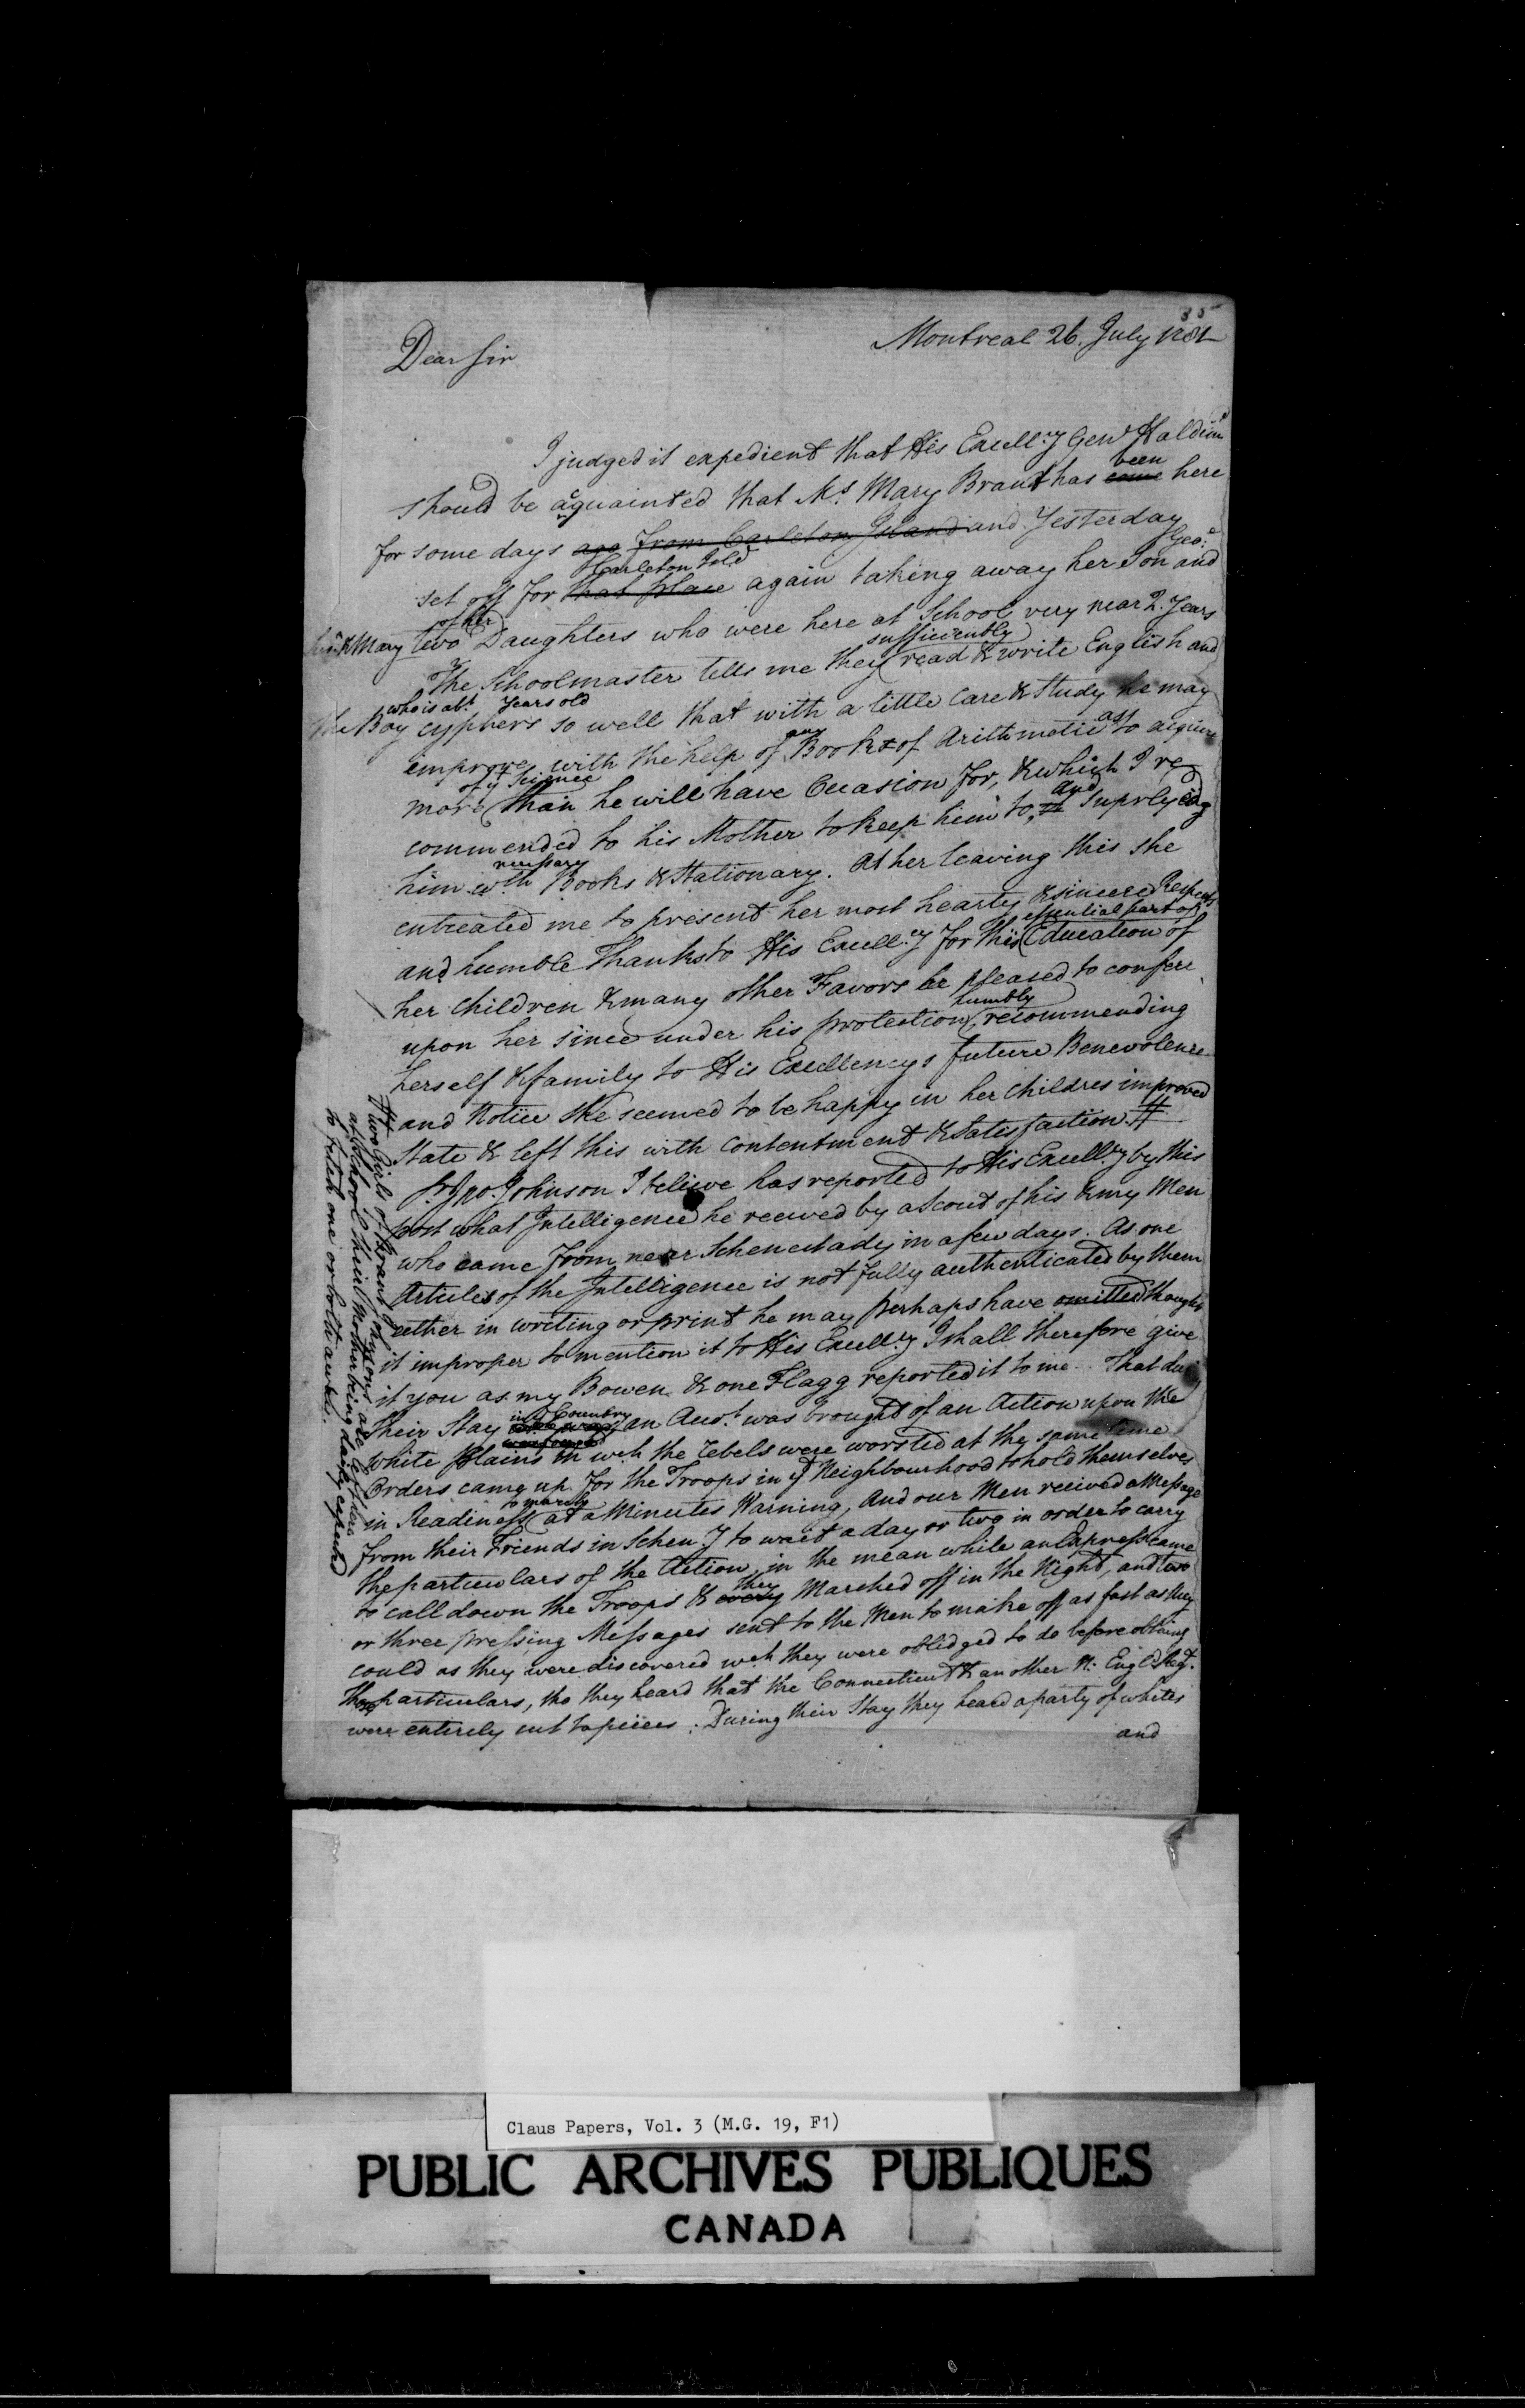 35
Montreal 26. July 1781
Dear Sir
I judged it expedient that His Excell.cy Gen.l Haldim.d
should be acquainted that Mrs. Mary Brant has come been here
for some days ago from Carleton Island and Yesterday
set off for that place Carleton Isl.d again taking away her Son Geo: and
& Mary two of her Daughters who were here at School very near 2. Years
The Schoolmaster tells me they sufficiently read & write English and
the Boy who is ab.t years old cyphers so well that with a little Care & Study he may
improve with the help of any Book of Arithmetic as to acquire
more of y.t Science than he will have Occasion for, & which I re
commended to his Mother to keep him to, and supplying
him wth necessary Books & Stationary. At her leaving this she
entreated me to present her most hearty & sincere Respects
and humble Thanks to His Excell.cy for this essential part of Education of
her Children & many other Favors he pleased to confer
upon her since under his protection, humbly recommending
herself & family to His Excellencys future Benevolence
and Notice She seemed to be happy in her Childres improved
State & left this with Contentment & Satisfaction. #
Sr. Jno. Johnson I believe has reported to His Excell.cy by this
post what Intelligence he received by a Scout of his & my Men
who came from near Schenectady in a few days. As one
Articles of the Intelligence is not fully authenticated by them
either in writing or print he may perhaps have omitted thought
it improper to mention it to His Excell.cy I shall therefore give
it you as my Bowen & one Flagg reported it to me. That dur
their Stay in y.e Country an Acco.t was brought of an Action upon the
white Plains in wch the rebels were worsted at the same time
Orders came up for the Troops in y.e Neighbourhood to hold themselves
in Readiness to march at a Minutes Warning, And our Men received a Message
from their Friends in Schen.y to wait a day or two in order to carry
the particulars of the Action, in the mean while an Express came
to call down the Troops & every they Marched off in the Night, and two
or three pressing Messages sent to the Men to make off as fast as they
could as they were discovered wch they were oblidged to do before obtaing
those particulars, tho they heard that the Connecticut & another N: Engl.d Reg.t
were entirely cut to pieces. During their Stay they heard a party of whites
and
# two Girls of Brant Johnsons are left here
at School their Mother being daily expected
to fetch one or both awai.
Claus Papers, Vol. 3 (M.G. 19, F1)
PUBLIC ARCHIVES PUBLIQUES
CANADA